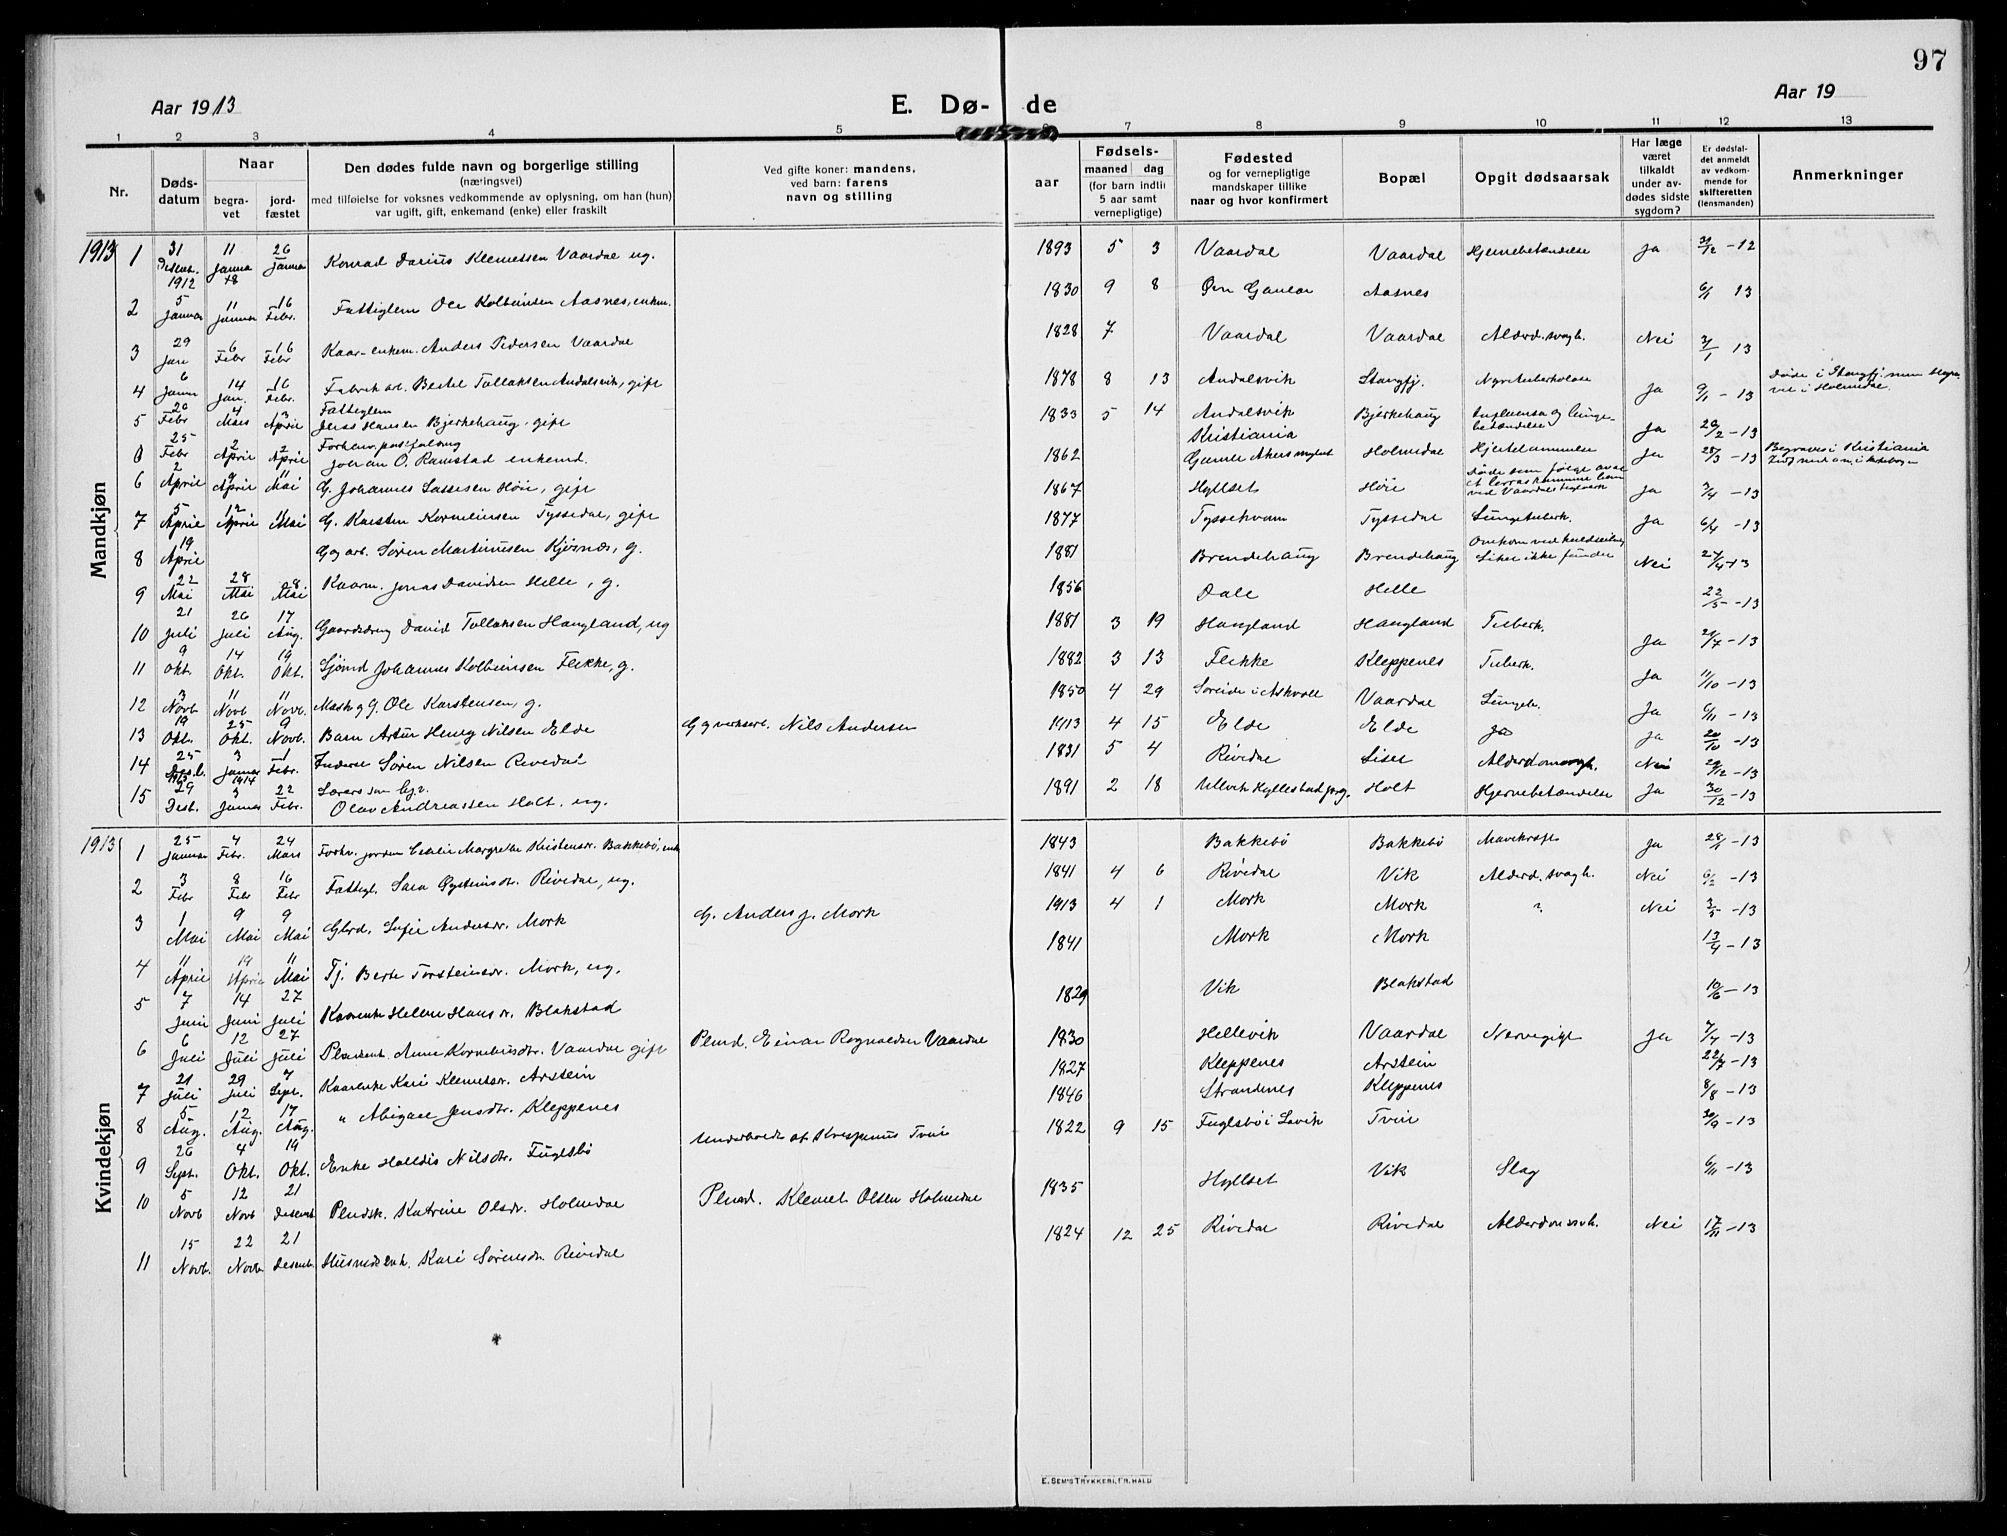 97
Aar 1913
E. Dø-
de
Aar 19
1 2 3 4 5 6 7 8 9 10 11 12 13
Nr.
Døds-
datum
Naar
begra-
vet
jord-
fæstet
Den dødes fulde navn og borgerlige stilling
(næringsvei)
med tilføielse for voksnes vedkommende av oplysning, om han (hun)
var ugift, gift, enkemand (enke) eller fraskilt
Ved gifte koner: mandens,
ved barn: farens
navn og stilling
aar
Fødsels-
maaned dag
(for barn indtil
5 aar samt
vernepligtige)
Fødested
og for vernepligtige
mandskaper tillike
naar og hvor konfirmert
Bopæl
Opgit dødsaarsak
Har læge
været
tilkaldt
under av-
dødes sidste
sygdom?
Er dødsfal-
det anmeldt
av vedkom-
mende for
skifteretten
(lensmanden)
Anmerkninger
Mandkjøn
1913 1 31 Desemb. 1912 11 Januar 26 Januar Konrad Darius Klemetsen Vaardal ug. 1893 5 3 Vaardal Vaardal Hjernebetændelse Ja 31/12 - 12
2 5 Januar 11 Januar 16 Febr. Fattiglem Ole Kolbeinsen Aasnes, enkem. 1830 9 8 Aasnes 6/1 13
3 29 Jan 6 Febr 16 Febr Kaar-enkem. Anders Pedersen Vaardal 1828 7 Vaardal Vaardal Alderd. svagh. Nei 31/1 13
4 6 Janu 14 Jan. 16 Febr. Fabrik arb. Bertel Tollaksen Andalsvik, gift 1878 8 13 Andalsvik Stangfj. Nyretuberkolose Ja 9/1 - 13
5 20 Febr 4 Mars 3 April Fattiglem Jens Hansen Bjerkehaug, gift 1833 5 14 Andalsvik Bjerkehaug Influensa og lunge-
betændelse Ja 20/2 - 13
0 25 Febr 2 April 2 April Johan O. Ramstad enkemd. 1862 Kristiania
Gamle Akers Holmedal Hjertelammelse Ja 28/3 - 13 Begravet i Kristiania
6 2 April 9 April 11 Mai G. Johannes Lassesen Høie, gift 1867 Hyllset Høie Døde som følge av
ved Vaardals Ja 3/4 - 13
7 5 April 12 April 11 Mai G. Karsten Kornelinsen Tyssedal, gift 1877 Tyssekvam Tyssedal Lungetuberk. Ja 6/4 - 13
8 19 April G og arb. Søren Martinusen Kjørnæs, g. 1881 Brendehaug Brendehaug Omkom ved
Liket ikke funden Nei 27/4 - 13
9 22 Mai 28 Mai 28 Mai Kaarm. Jonas Davidsen Helle, g. 1856 Dale Helle 22/5 - 13
10 21 Juli 26 Juli 17 Aug. Gaardsdrug David Tollaksen Haugland, ug 1881 3 19 Haugland Haugland Tuberk. Ja 29/7 - 13
11 9 Okt. 14 Okt. 19 Okt. Sjømd Johannes Kolbeinsen Flekke, g. 1882 3 13 Flekke Kleppenes Tuberk. Ja 11/10 - 13
12 3 Novb 11 Novb 11 Novb. Ole Karstensen, g. 1850 4 29 Søreide i Askvoll Vaardal Ja 6/11 - 13
13 19 Okt. 25 Okt. 9 Novb. Barn Artur Henry Nilsen Elde Nils Andersen 1913 4 15 Elde Elde Ja Ja 20/10 - 13
14 25 Desb. 1913 3 Januar 1914 1 Febr. Inderst Søren Nilsen Rivedal 1831 5 4 Rivedal Alderdomsvagh. Nei 29/12 - 13
15 29 Desb. 3 Januar 22 Febr. Lærers søn
Olav Andreassen Holt, ug. 1891 2 18 Ullvik Holt Hjernebetændelse Ja 30/12 - 13
Kvindekjøn
1913 1 25 Januar 4 Febr. 24 Mars Forhv. jordm Margrete Kristensdr. Bakkebø, enk 1843 Bakkebø Bakkebø Mavekræft Ja 28/1 - 13
2 3 Febr 8 Febr 16 Febr Fattigl. Sara Øysteinsdr. Rivedal, ug. 1841 4 6 Rivedal Vik Alderd. svagh. Nei 6/2 - 13
3 1 Mai 9 Mai 9 Mai Gbrd. Sofie Andersdr. Mork G. Anders J. Mork 1913 4 1 Mork Mork ? Nei 3/5 - 13
4 11 April 19 April 11 Mai Tj. Berte Torsteinsdr. Mork, ug. 1841 Mork Mork 13/4 - 13
5 7 Juni 14 Juni 27 Juli Kaarenke Helene Hansdr. Blakstad 1829 Vik Blakstad 10/6 - 13
6 6 Juli 12 Juli 27 Juli Anne Kornelinsdtr. Vaardal gift Plmd. Einar Rognaldsen Vaardal 1830 Hellevik Vaardal Nervegigt Ja 7/7 - 13
7 21 Juli 29 Juli 7 Sept. Kaarenke Kari Klemetsdr. Arstein 1827 Kleppenes Arstein 22/7 - 13
8 5 Aug. 12 Aug. 17 Aug. " Abigael Jensdtr. Kleppenes 1846 Strandenes Kleppenes 8/8 - 13
9 26 Sept. 4 Okt. 19 Okt. Enke Halldis Nilsdtr. Fuglebø Underholdt af Krispinus Tviri 1822 9 15 Fuglebø i Lavik Tviri 30/9 - 13
10 5 Novb 12 Novb 21 Desemb Plmdsk. Katrine Olsdr. Holmedal Plmd. Klemet Olsen Holmedal 1835 Hyllset Vik Slag 6/11 - 13
11 15 Novb. 22 Novb 21 Desemb. Husmdsenk. Kari Sørensdr Rivedal 1824 12 25 Rivedal Rivedal Alderdomssvh. Nei 17/11 - 13
E. SEM'S TRYKKERI, FR.HALD